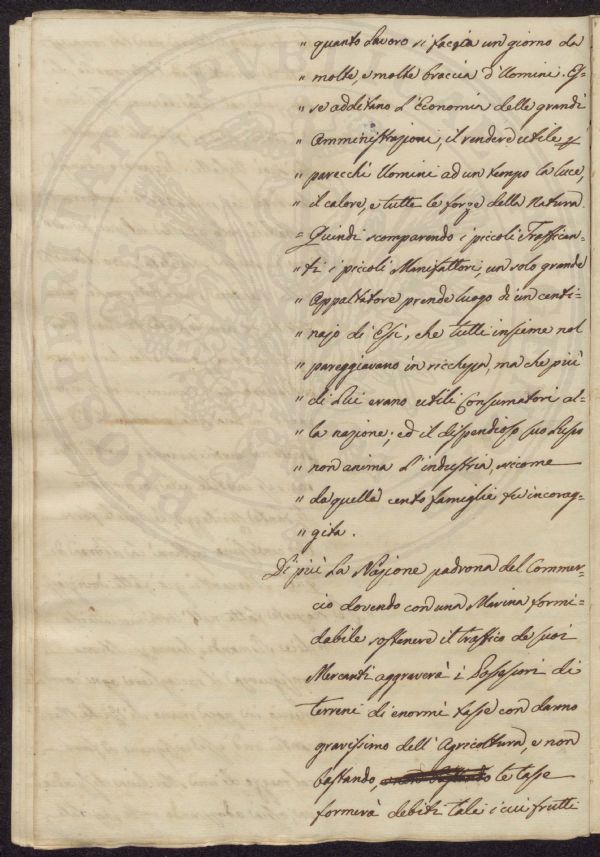 " quanto Lavoro si faccia un giorno da
" molte, e molte braccia d'Uomini. Es-
" se additano L'Economia delle grandi
" Amministrazioni, il rendere utile p
" parecchi Uomini ad un tempo la luce,
" il calore, e tutte le forze della Natura.
= Quindi scomparendo i piccoli Traffican-
" ti i piccoli Manifattori, un solo grande
" Appaltatore prende luogo di un centi-
" najo di Essi, che tutti insieme nol
" pareggiavano in ricchezza, ma che più
" di Lui erano utili Consumatori al-
" la nazione; ed il dispendioso suo Lusso
" non anima L'industria, siccome
" da quella cento famiglie fu incorag-
" gita.
Di più La Nazione padrona del Commer-
cio dovendo con una Marina formi-
dabile sostenere il traffico de suoi
Mercanti aggraverà i Possessori di
terreni di enormi tasse con danno
gravissimo dell'Agricoltura, e non
bastando, le tasse
formerà debiti tali i cui frutti
PVBLICAE
PROSPERITATIS